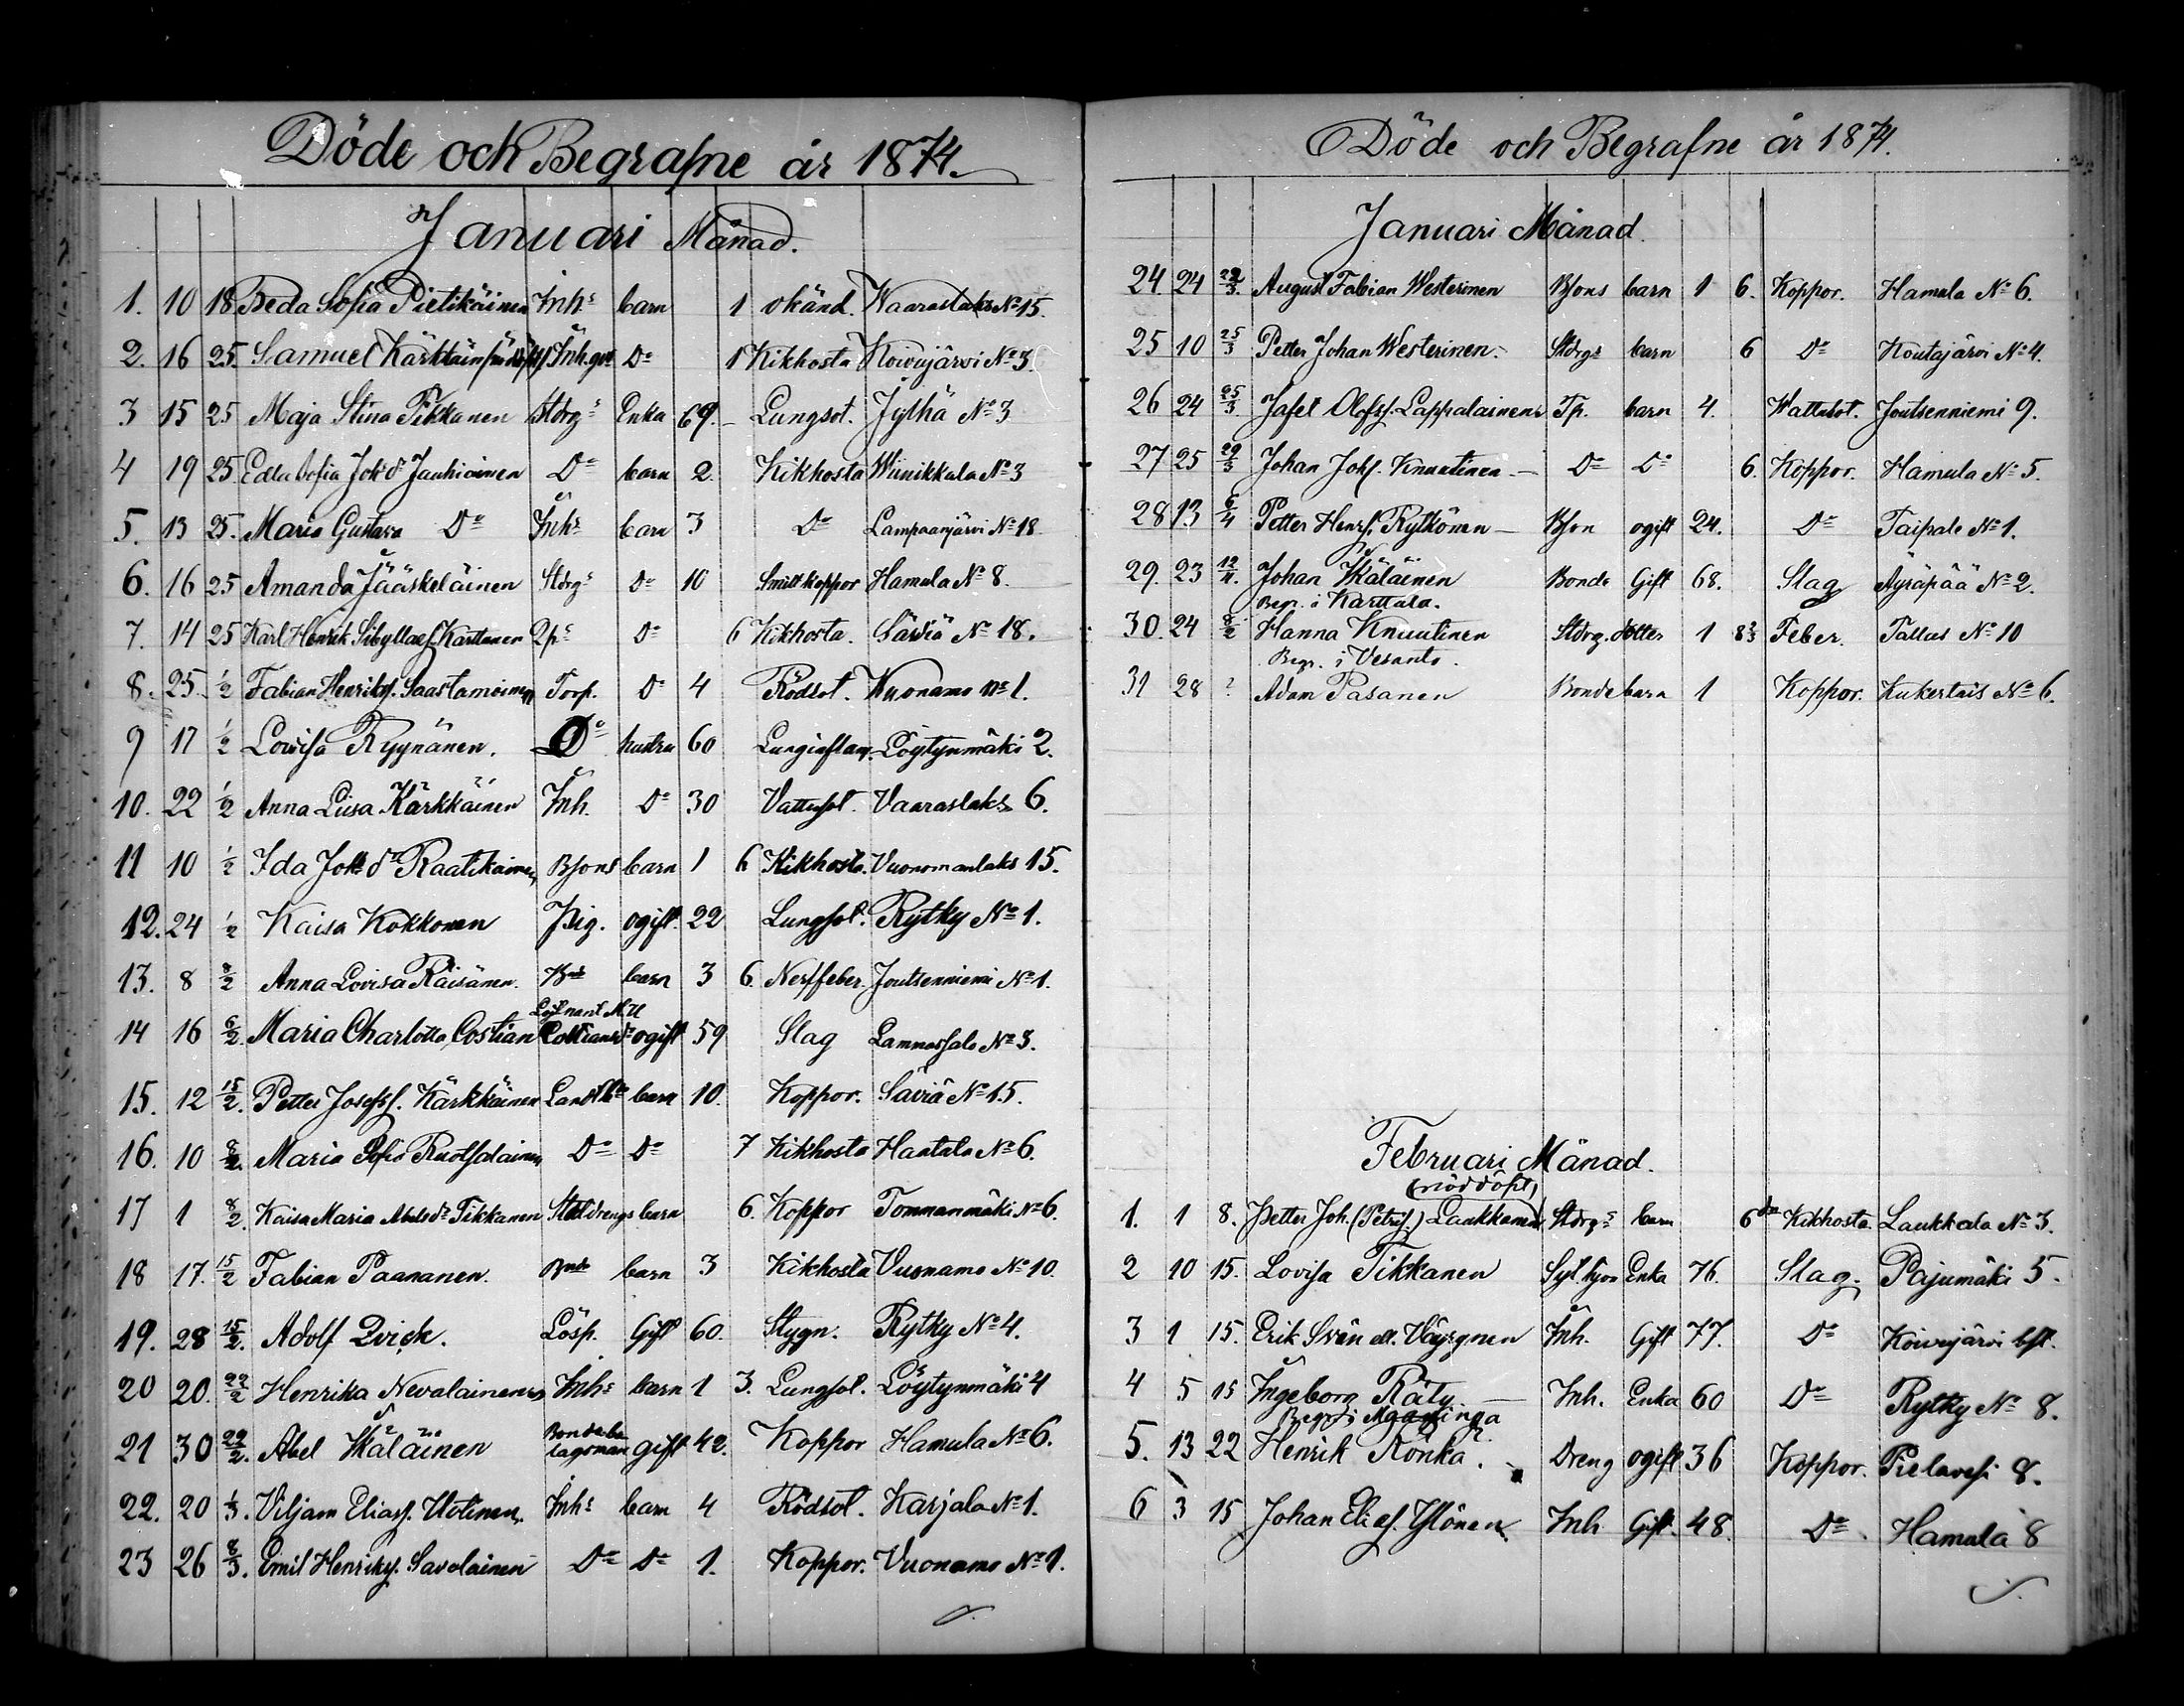 Döde och Begrafne år 1874.
Januari Månad.
1. 10 18 Beda Sofia Pietikäinen Inhs barn 1 okänd. Waaraslaks No 15.
2. 16 25. Samuel Inh. Do 1 Kikhosta Koivujärvi No 3.
3 15 25 Maja Stina Tikkanen Stdrgs Enka 69. – Lungsot. Jylhä No 3
4 19 25. Edla Sofia Joh dr Jauhiainen Do barn 2. Kikhosta Winikkala No 3
5. 13 25. Maria Gustava Do Inhs barn 3 Do Lampaanjärvi No 18
6. 16 25 Amanda Jääskeläinen Stdrgs Do 10 Smittkoppor Hamula No 8.
7. 14 25 Karl Henrik Sibyllaef. Karttunen Do 6 Kikhosta. Säviä No 18.
8. 25. 1/2 Fabian Henriksf. Saastamoinen Torp. Do 4 Rödsot. Wuonamo No 1.
9 17 1/2 Lovisa Ryynänen. Do hustru 60 Lunginflam. Löytynmäki 2.
10. 22 1/2 Anna Liisa Kärkkäinen Inh. Do 30 Vattusot. Vaaraslaks 6.
11 10 1/2 Ida Joh dr Raatikainen Bsons barn 1 6 Kikhosta. Vuonamanlaks 15.
12. 24 1/2 Kaisa Kokkonen Pig. ogift. 22 Lungsot. Rytky No 1.
13. 8 8/2 Anna Lovisa Räisänen. Bnde barn 3 6. Nerffeber. Joutsenniemi No 1.
14 16 6/2. Maria Charlotta Costian Costians dr ogift 59 Slag Lammassalo No 3.
15. 12 15/2. Petter Josefsf. Kärkkäinen barn 10. Koppor. Säviä No 15.
16. 10 8/2. Maria Sofia Ruotsalainen Do Do 7 Kikhosta Hautala No 6.
17 1 8/2. Kaisa Maria Abels dr Tikkanen Stdrengs barn 6. Koppor Tommanmäki No 6.
18 17. 15/2 Fabian Paananen. Bnde barn 3 Kikhosta Vuonamo No 10.
19. 28 15/2. Adolf Qvick. Lösp. Gift 60. Stygn. Rytky No 4.
20 20. 22/2 Henrika Nevalainen Inhs barn 1 3. Lungsot. Löytynmäki 4
21 30 22/2. Abel Ikäläinen gift 42. Koppor Hamula No 6.
22. 20 1/3. Viljam Eliasf. Utotinen. Inhs barn 4 Rödsot. Karjala No 1.
23 26 8/3. Emil Henriksf. Savolainen Do Do 1. Koppor. Vuonamo No 1.
Döde och Begrafne år 1874.
Januari Månad.
24. 24 22/3. August Fabian Westerinen Bsons barn 1 6. Koppor. Hamula No 6.
25 10 25/3 Petter Johan Westerinen. Stdrgs barn 6 Do Koutajärvi No 4.
26 24 25/3 Jafet Olofsf. Lappalainen Tp. barn 4. Wattusot. Joutsenniemi 9.
27 25 29/3 Johan Johsf. Knuutinen – Do Do 6. Koppor. Hamula No 5.
28 13 6/4 Petter Henrsf. Rytkönen – Bson ogift 24. Do Taipale No 1.
29. 23 12/4. Johan Ikäläinen Bonde Gift 68. Slag Äyräpää No 2.
Begr. i Karttula.
30. 24 8/2 Hanna Knuutinen Stdrg. dotter 1 8 2/3 Feber. Tallus No 10
Begr. i Vesanto.
31 28 ? Adam Pasanen Bonde barn 1 Koppor. Kukertais No 6.
Februari Månad.
(nöddöpt)
1. 1 8. Petter Joh. (Petrisf.) Laukkanen Stdrgs barn 6 dar Kikhosta. Laukkala No 3.
2 10 15. Lovisa Tikkanen Enka 76. Slag. Pajumäki 5.
3 1 15. Erik Svän ell. Väyrynen Inh. Gift 77. Do Koivujärvi bst.
4 5 15 Ingeborg Räty – Inh. Enka 60 Do Rytky No 8.
Begr. i Maaninga
5. 13 22 Henrik Rönkä. Dreng ogift 36 Koppor. Pielavesi 8.
6 3 15 Johan Eliasf. Ylönen Inh Gift. 48. Do Hamula 8